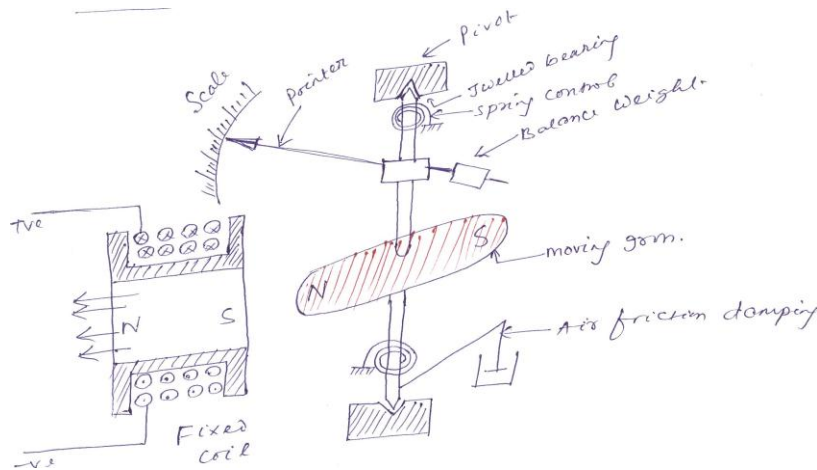 Pivot
Jwelled bearing
Spring control
Balance weight.
Scale
pointer
+ve
N S
N S
moving iron.
Air friction damping
Fixed
coil
-ve